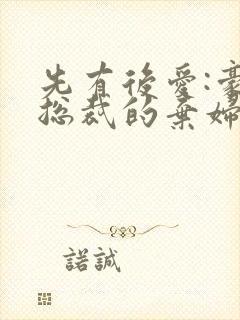 先有後愛:豪
總裁的棄婦
諾誠